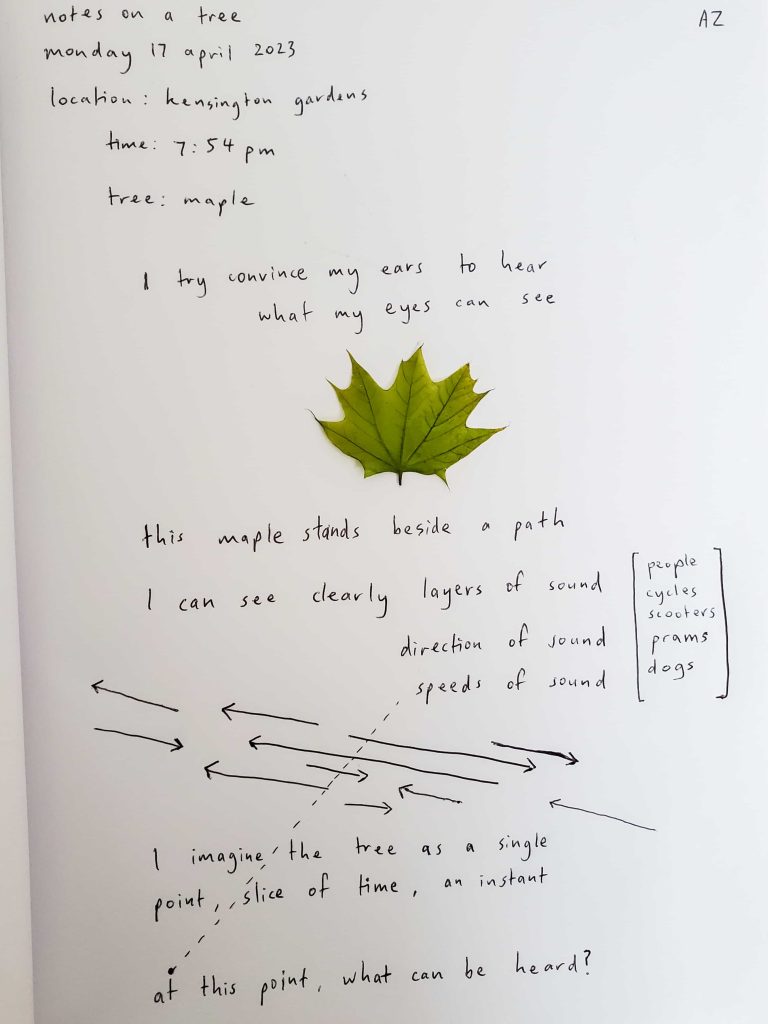 notes on a tree
AZ
monday 17 april 2023
location: kensington gardens
time: 7:54 pm
tree: maple
I try convince my ears to hear
what my eyes can see
this maple stands beside a path
I can see clearly layers of sound
direction of sound
speeds of sound
people
cycles
scooters
prams
dogs
I imagine the tree as a single
point, slice of time, an instant
at this point, what can be heard?